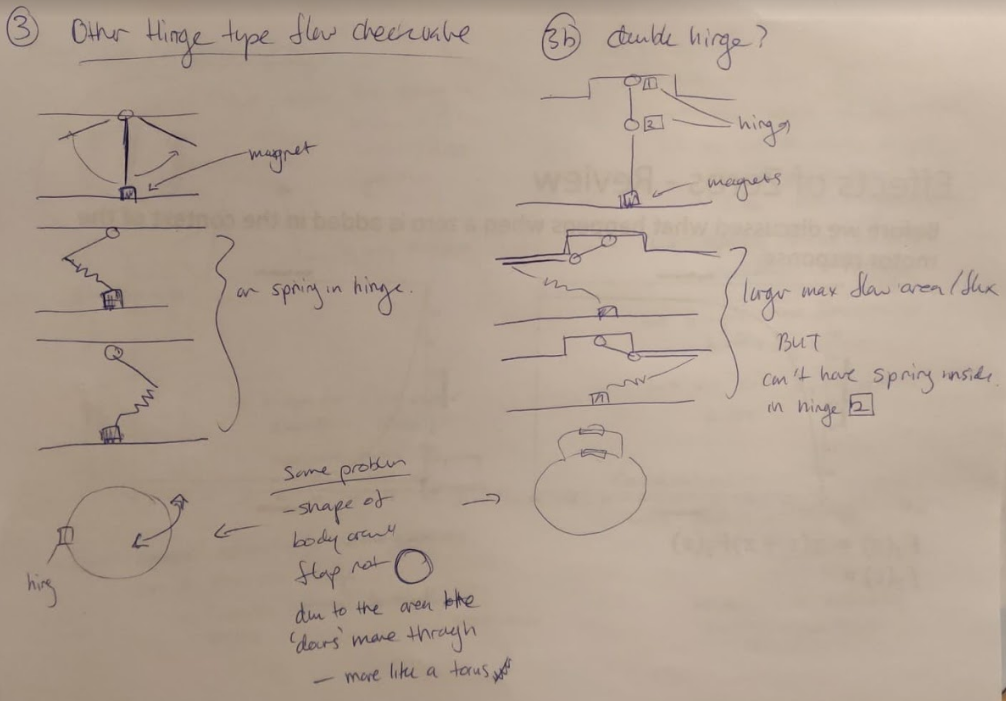 ③ Other Hinge type flow checkvalve
magnet
or spring in hinge.
hing
same problem
- shape of
body
flap not
due to the area the
'doors' move through
- more like a torus
3b double hinge?
1
2
hinge
magnets
larger max flow area / flux
BUT
can't have spring inside
in hinge 2
Effects of Zeros - Review
Before we discussed what happens when a zero is added in the context of the
motor response